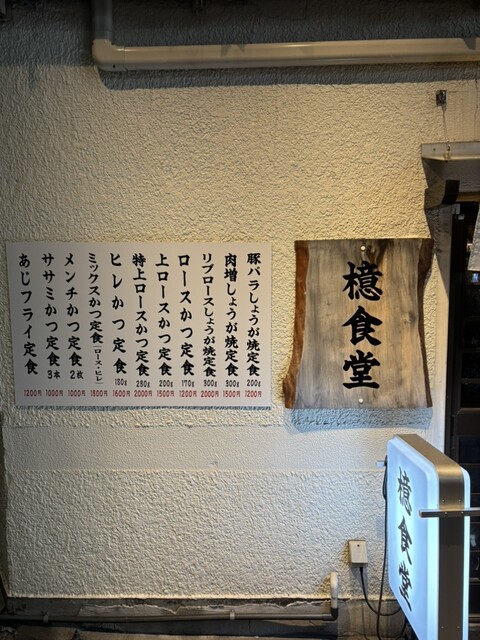 豚バラしょうが焼定食 200g 1200円
肉増しょうが焼定食 300g 1500円
リブロースしょうが焼定食 300g 2000円
ロースかつ定食 170g 1200円
上ロースかつ定食 200g 1500円
特上ロースかつ定食 280g 2000円
ヒレかつ定食 180g 1600円
ミックスかつ定食(ロース・ヒレ) 1800円
メンチかつ定食 2枚 1000円
ササミかつ定食 3本 1000円
あじフライ定食 1200円
檍食堂
檍食堂